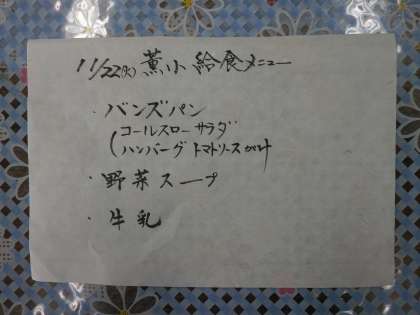 11/22(火) 薫小 給食メニュー
・バンズパン
(コールスローサラダ
(ハンバーグ トマトソースがけ
・野菜スープ
・牛乳